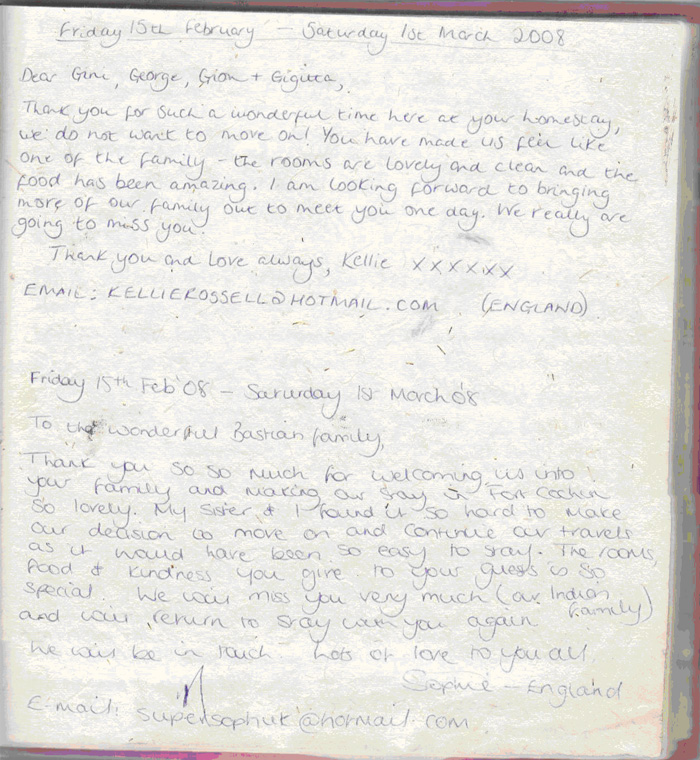 Friday 15th February - Saturday 1st March 2008
Dear Gini, George, Gion + Gigitta,
Thank you for such a wonderful time here at your homestay,
we do not want to move on! You have made us feel like
one of the family - the rooms are lovely and clean and the
food has been amazing. I am looking forward to bringing
more of our family out to meet you one day. We really are
going to miss you.
Thank you and love always, Kellie xxxxxx
EMAIL: KELLIEROSSELL@HOTMAIL.COM (ENGLAND)
Friday 15th Feb '08 - Saturday 1st March 08
To the wonderful Bastian family,
Thank you so so much for welcoming us into
your family and making our stay in Fort Cochin
so lovely. My sister & I found it so hard to make
our decision to move on and continue our travels
as it would have been so easy to stay. The rooms,
food & kindness you give to your guests is so
special. We will miss you very much (our Indian
family)
and will return to stay with you again
We will be in touch Lots of love to you all
Sophie - England
E-mail: supersophuk@hotmail.com